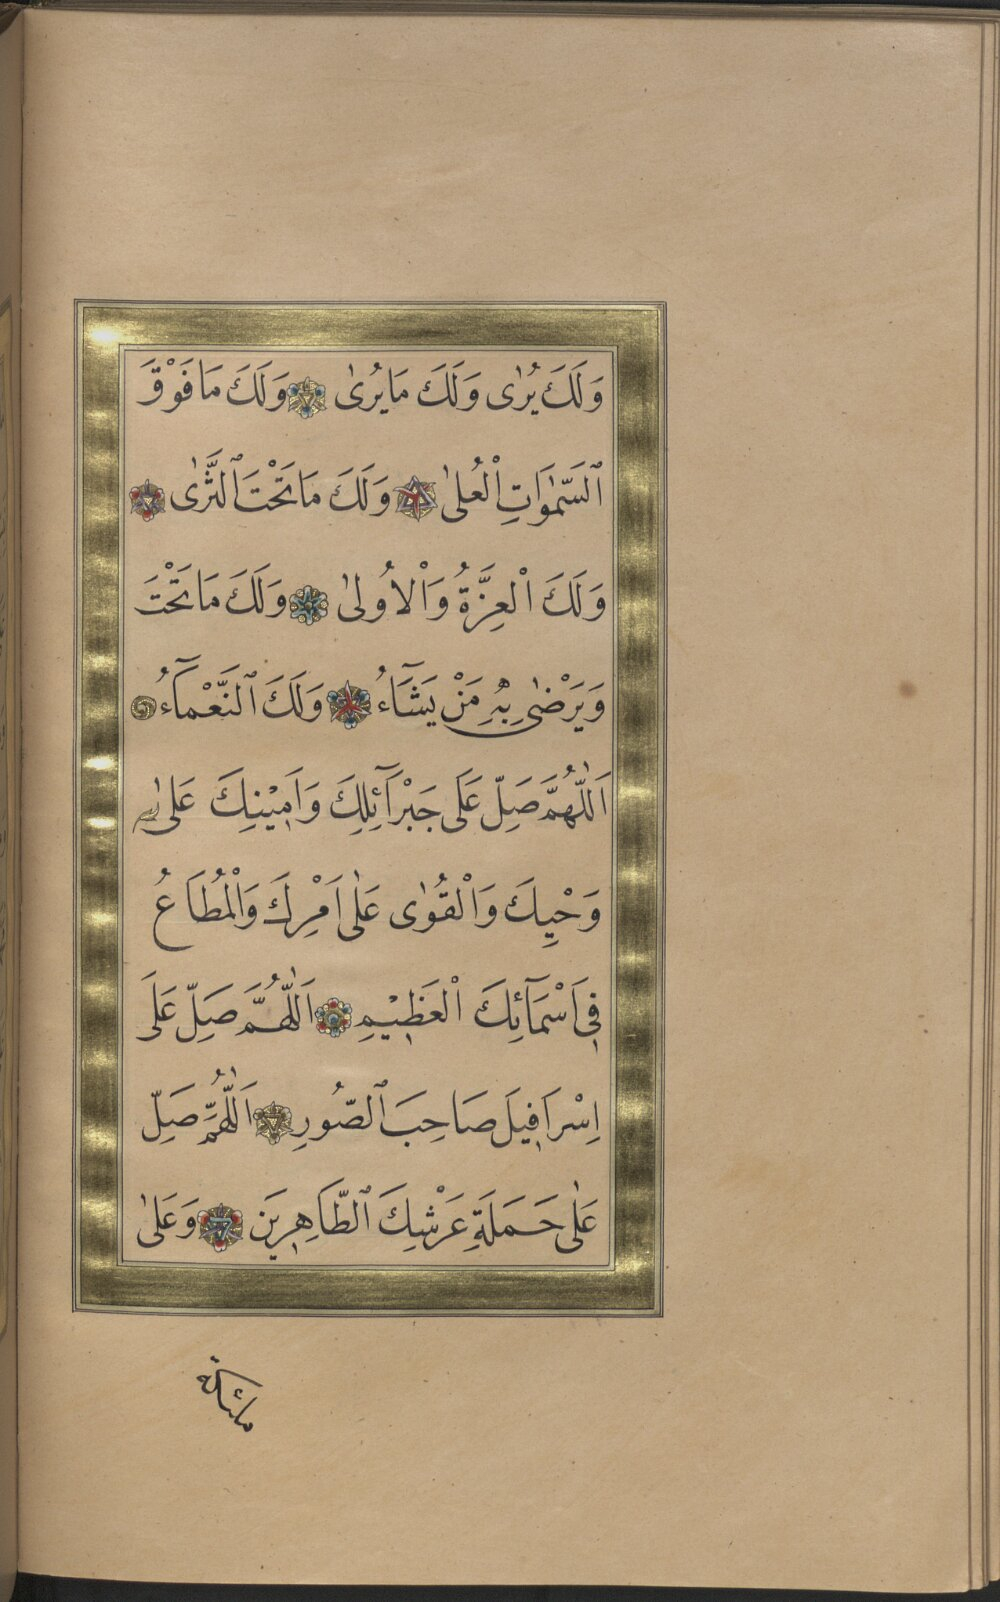 وَلَكَ يُرٰى وَلَكَ مَا يُرىٰ وَلَكَ مَا فَوْقَ
ٱلسَّمٰوَاتِ الْعُلىٰ وَلَكَ مَا تَحْتَ ٱلثَّرٰى
وَلَكَ الْعِزَّةُ وَالْاُولىٰ وَلَكَ مَا تَحْتَ
وَيَرْضٰى بِهِ مَنْ يَشَآءُ وَلَكَ ٱلنَّعْمَآءُ
اَللّٰهُمَّ صَلِّ عَلَى جَبْرَآئِلِكَ وَاَمِيْنِكَ عَلىٰ
وَحْيِكَ وَالْقُوٰى عَلٰى اَمْرِكَ وَالْمُطَاعُ
فِى اَسْمَآئِكَ الْعَظِيْمِ اَللّٰهُمَّ صَلِّ عَلَى
اِسْرَافِيلَ صَاحِبَ ٱلصُّورِ اَللّٰهُمَّ صَلِّ
عَلٰى حَمَلَةِ عَرْشِكَ ٱلطَّاهِرِينَ وَعَلىٰ
ملئكة